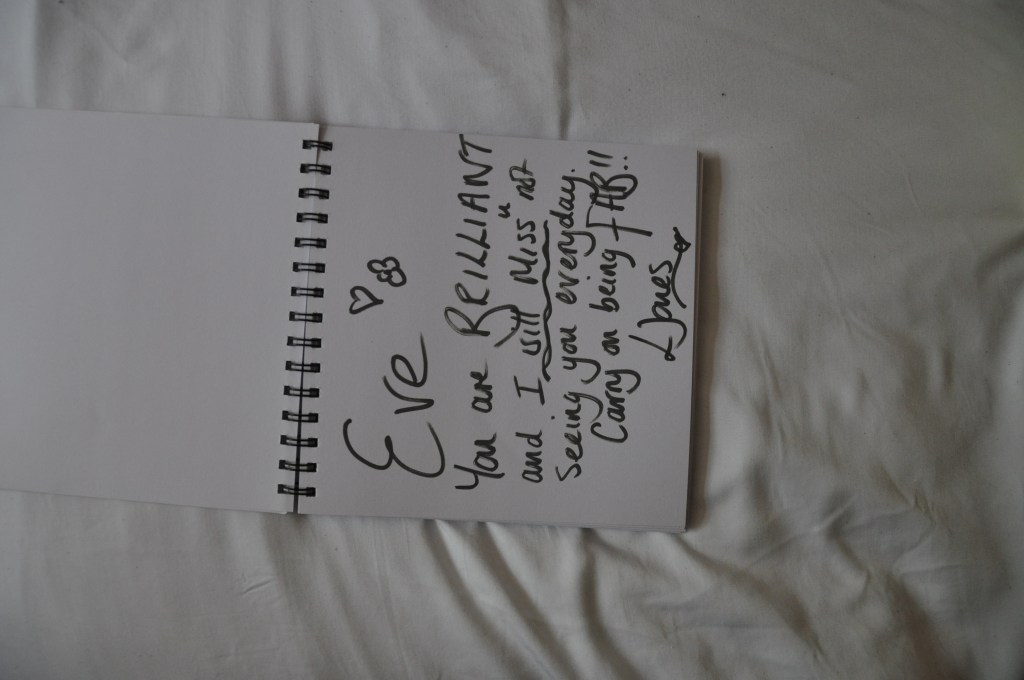 Eve
You are BRILLIANT
and I will Miss" not
seeing you everyday.
Carry on being FAB!!
L Jones